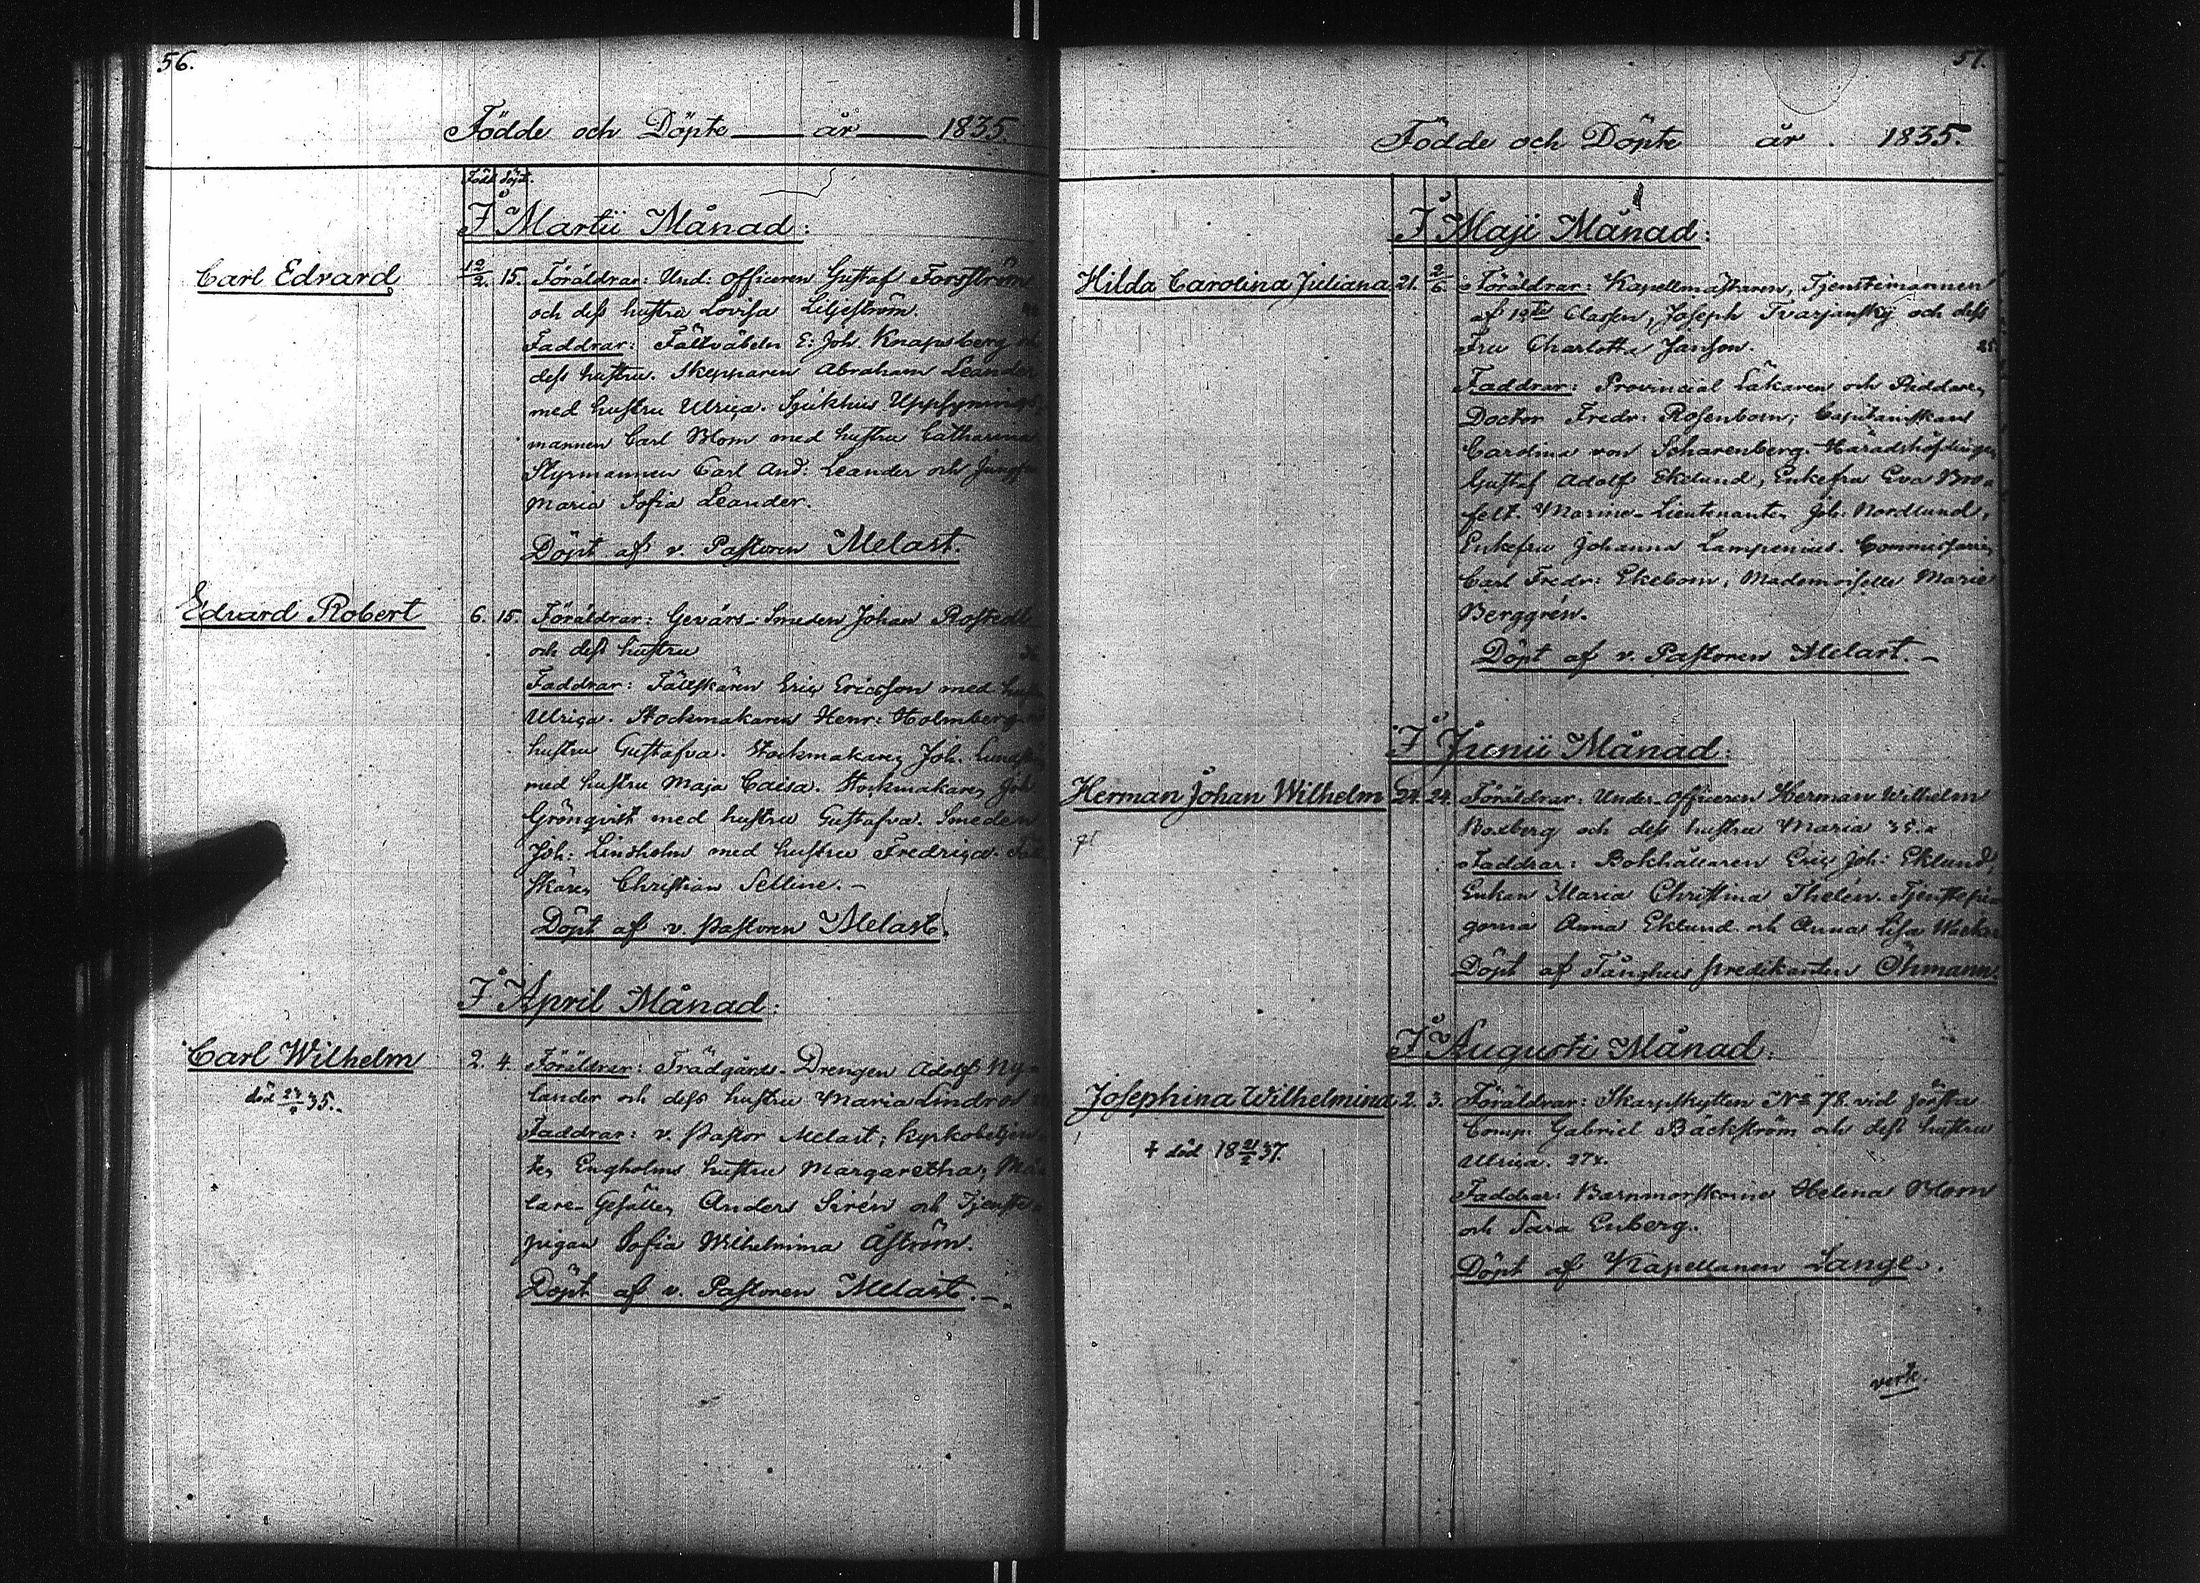 56.
Födde och Döpte år 1835.
Född. döpt.
I Martii Månad:
Carl Edvard
12/2. 15. Föräldrar: Und: Officeren Gustaf Forsström
och dess hustru Lovisa Liljeström.
Faddrar: Fältväbeln E: Joh. Knapsberg
dess hustru. Skepparen Abraham Leander
med hustru Ulrica. Sjukhus Uppsynings
mannen Carl Blom med hustru Catharina
Styrmannen Carl And: Leander och Jungfru
Maria Sofia Leander.
Döpt af v. Pastoren Melart.
Edvard Robert
6. 15. Föräldrar: Gevärs-Smeden Johan Rostedt
och dess hustru
Faddrar: Fältskären Eric Ericsson med
Ulrica. Stockmakaren Henr: Holmberg
hustru Gustafva. Stockmakaren Joh.
med hustru Maja Caisa. Stockmakaren Joh
Grönqvist med hustru Gustafva. Smeden
Joh: Lindholm med hustru Fredrica.
skären Christian Selline.-
Döpt af v. Pastoren Melart.
I April Månad:
Carl Wilhelm
död 35.-
2. 4. Föräldrar: Trädgårds-Drengen Adolf Ny-
lander och dess hustru Maria Lindros
Faddrar: v. Pastor Melart; Kyrkobetjen
ten Engholms hustru Margaretha; Må
lare-Gesällen Anders Sirén och Tjenste
pigan Sofia Wilhelmina Åström.
Döpt af v. Pastoren Melart.-
57.
Födde och Döpte år 1835.
I Maji Månad:
Hilda Carolina Juliana
21. 2/6 Föräldrar: Kapellmästaren, Tjenstemannen
af 12te Classen, Joseph Tvarjansky och dess
Fru Charlotta Janson. 25
Faddrar: Provincial Läkaren och Riddaren
Doctor Fredr: Rosenbom; Capitainskan
Carolina von Scharenberg. Häradshöfdingen
Gustaf Adolf Ekelund, Enkefru Eva
felt. Marine-Lieutenanten Joh: Nordlund,
Enkefru Johanna Lampenius. Commissarien
Carl Fredr: Ekebom, Mademoiselle Marie
Berggrén.
Döpt af v. Pastoren Melart.-
I Junii Månad:
Herman Johan Wilhelm
24. 24. Föräldrar: Under-Officeren Herman Wilhelm
Boxberg och dess hustru Maria 35.
Faddrar: Bokhållaren Eric Joh: Eklund,
Enkan Maria Christina Thelén. Tjenstepi
gorna Anna Eklund och Anna Lisa
Döpt af Fånghus predikanten Öhmann.
I Augusti Månad:
Josephina Wilhelmina
† död 18 21/2 37.
2. 3. Föräldrar: Skarpskytten No 78 vid första
Comp: Gabriel Bäckström och dess hustru
Ulrica. 27.
Faddrar: Barnmorskorna Helena Blom
och Sara Enberg.
Döpt af Kapellanen Lange.
vert.